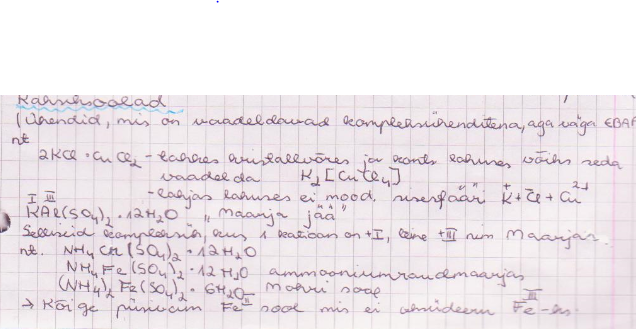 Kaksiksoolad
(Ühendid, mis on vaadeldavad kompleksühenditena, aga väga EBAP
nt
2KCl · CuCl₂ - tahkes kristallvõres ja konts lahuses võiks seda
vaadelda K₂[CuCl₄]
- lahjas lahuses ei mood. sisesfääri K⁺ + Cl⁻ + Cu²⁺
I III
KAl(SO₄)₂ · 12H₂O „maarja jää"
Selliseid komplekssooli, kus 1 katioon on +I, teine +III nim Maarjas.
nt. NH₄Cr(SO₄)₂ · 12H₂O
NH₄Fe(SO₄)₂ · 12H₂O ammooniumraudmaarjas
(NH₄)₂Fe(SO₄)₂ · 6H₂O Mohri sool
→ Kõige püsivam Fe II sool mis ei oksüdeeru Fe III -ks